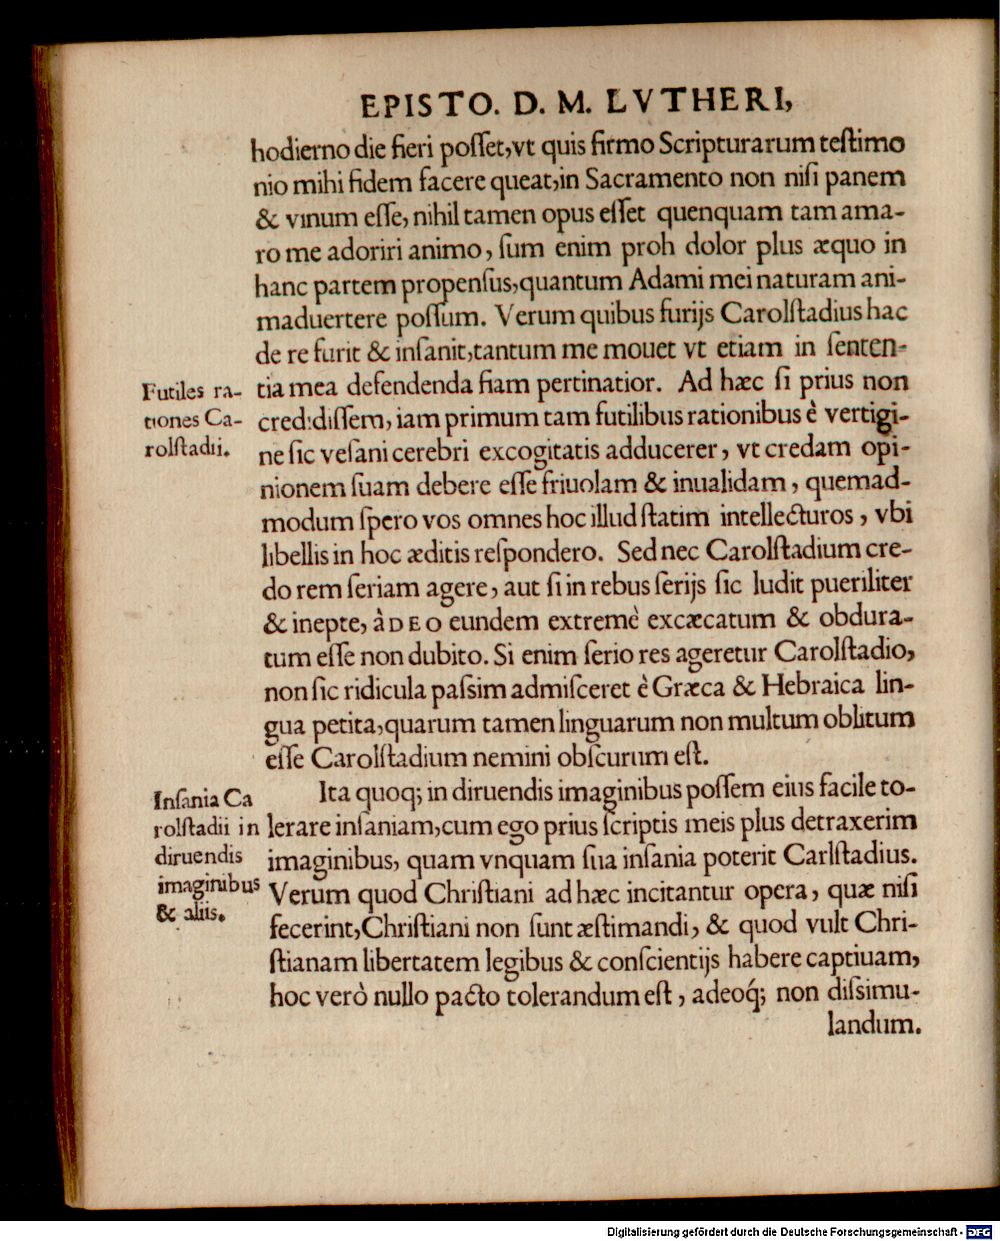 EPISTO. D. M. LVTHERI,
hodierno die fieri poſſet,vt quis firmo Scripturarum teſtimo
nio mihi fidem facere queat,in Sacramento non niſi panem
& vinum eſſe, nihil tamen opus eſſet quenquam tam ama-
ro me adoriri animo, ſum enim proh dolor plus æquo in
hanc partem propenſus,quantum Adami mei naturam ani-
maduertere poſſum. Verum quibus furijs Carolſtadius hac
de re furit & inſanit,tantum me mouet vt etiam in ſenten-
Futiles ra-
tiones Ca-
rolſtadii.
tia mea defendenda fiam pertinatior. Ad hæc ſi prius non
credidiſſem, iam primum tam futilibus rationibus è vertigi-
ne ſic veſani cerebri excogitatis adducerer, vt credam opi-
nionem ſuam debere eſſe friuolam & inualidam, quemad-
modum ſpero vos omnes hoc illud ſtatim intellecturos, vbi
libellis in hoc æditis reſpondero. Sed nec Carolſtadium cre-
do rem ſeriam agere, aut ſi in rebus ſerijs ſic ludit pueriliter
& inepte, à DEO eundem extremè excæcatum & obdura-
tum eſſe non dubito. Si enim ſerio res ageretur Carolſtadio,
non ſic ridicula paſsim admiſceret è Græca & Hebraica lin-
gua petita,quarum tamen linguarum non multum oblitum
eſſe Carolſtadium nemini obſcurum eſt.
Inſania Ca
rolſtadii in
diruendis
imaginibus
& aliis.
Ita quoq; in diruendis imaginibus poſſem eius facile to-
lerare inſaniam,cum ego prius ſcriptis meis plus detraxerim
imaginibus, quam vnquam ſua inſania poterit Carlſtadius.
Verum quod Chriſtiani ad hæc incitantur opera, quæ niſi
fecerint,Chriſtiani non ſunt æſtimandi, & quod vult Chri-
ſtianam libertatem legibus & conſcientijs habere captiuam,
hoc verò nullo pacto tolerandum eſt, adeoq́; non diſsimu-
landum.
Digitalisierung gefördert durch die Deutsche Forschungsgemeinschaft - DFG